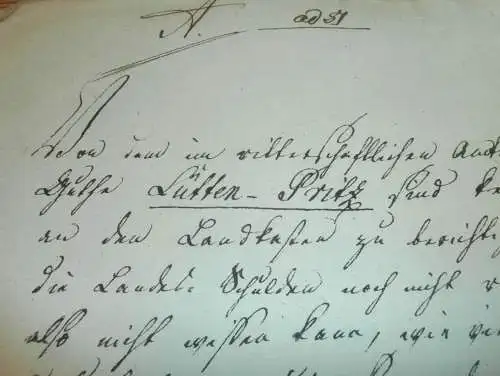 A. ad 51
Von dem im ritterschaftlichen Amt
Guthe Lütten-Pritz sind ke
an den Landkasten zu berichti
die Landes-Schulden noch nicht
also nicht wissen kann, wie vie